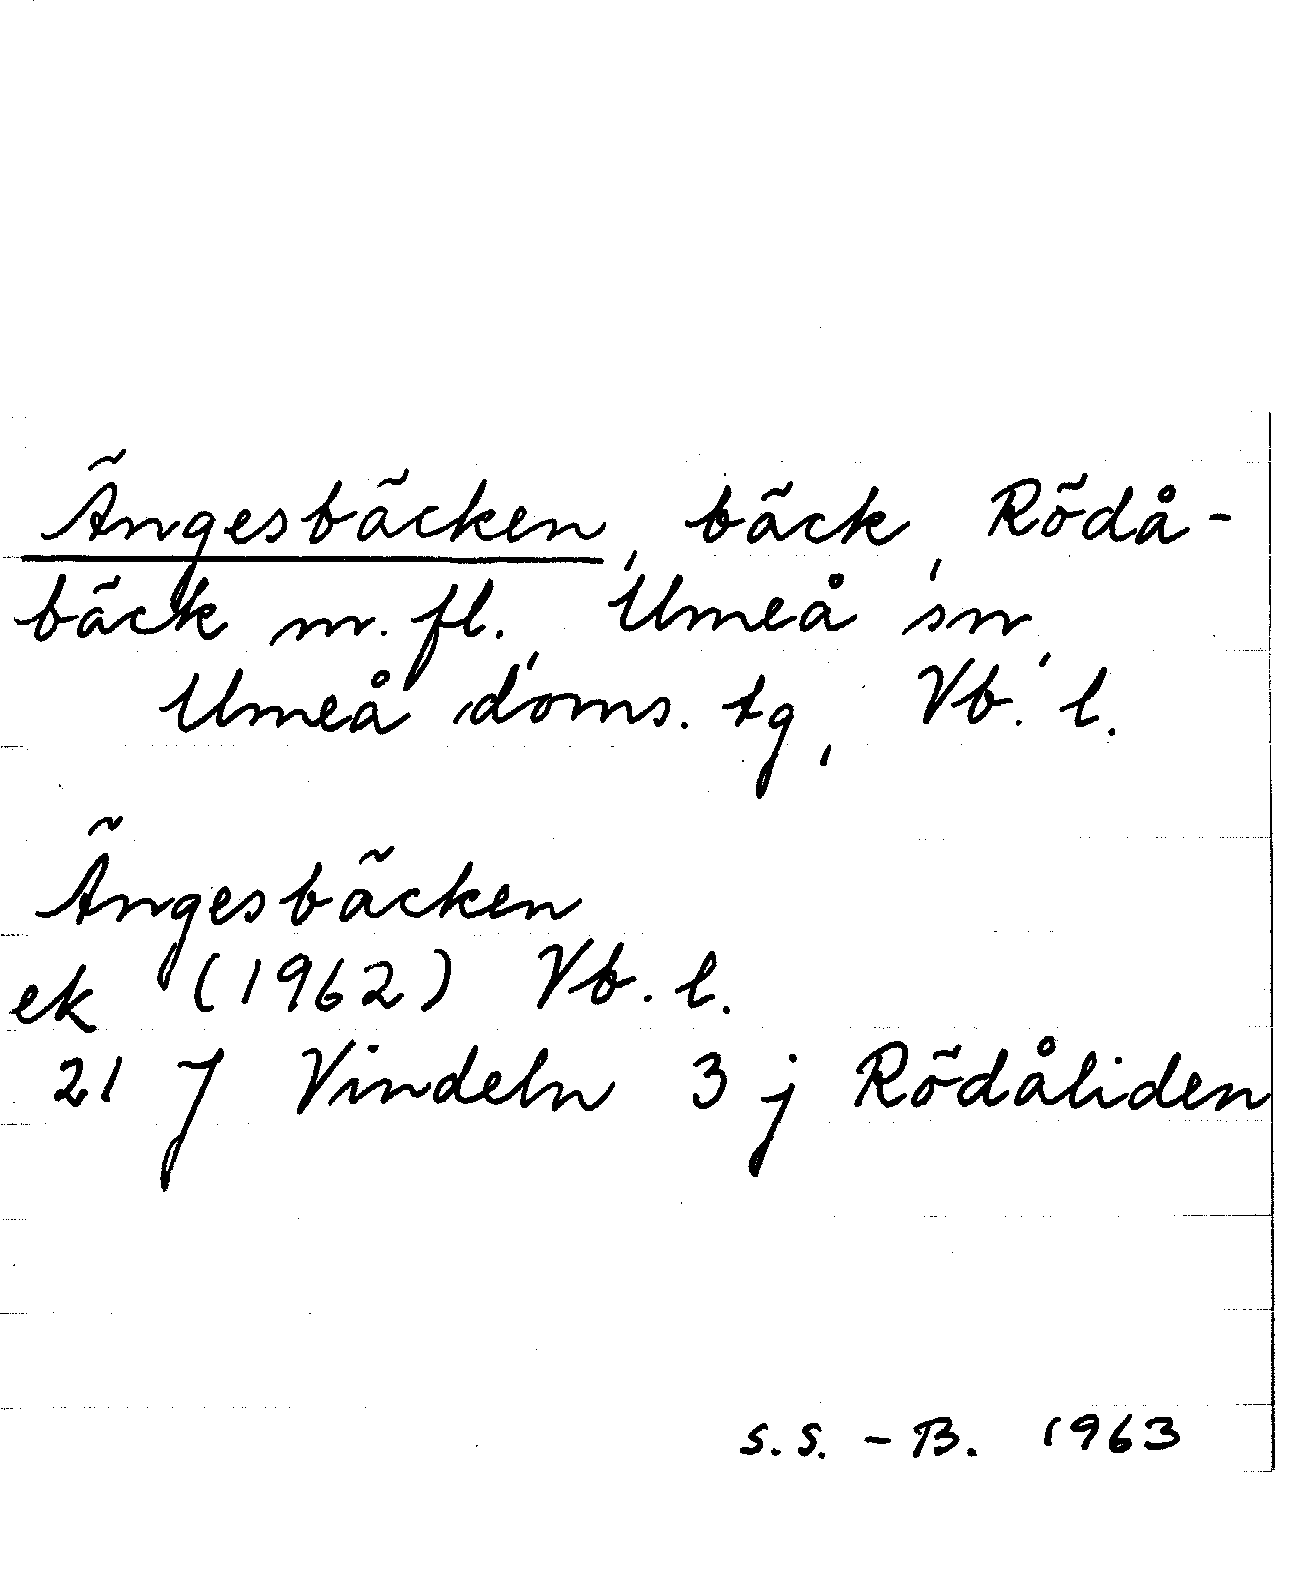 Ängesbäcken, bäck, Rödå-
bäck m. fl., Umeå sn,
Umeå doms. tg, Vb. l.
Ängesbäcken
ek (1962) Vb. l.
21 J Vindeln 3 j Rödåliden
S.S. - B. 1963